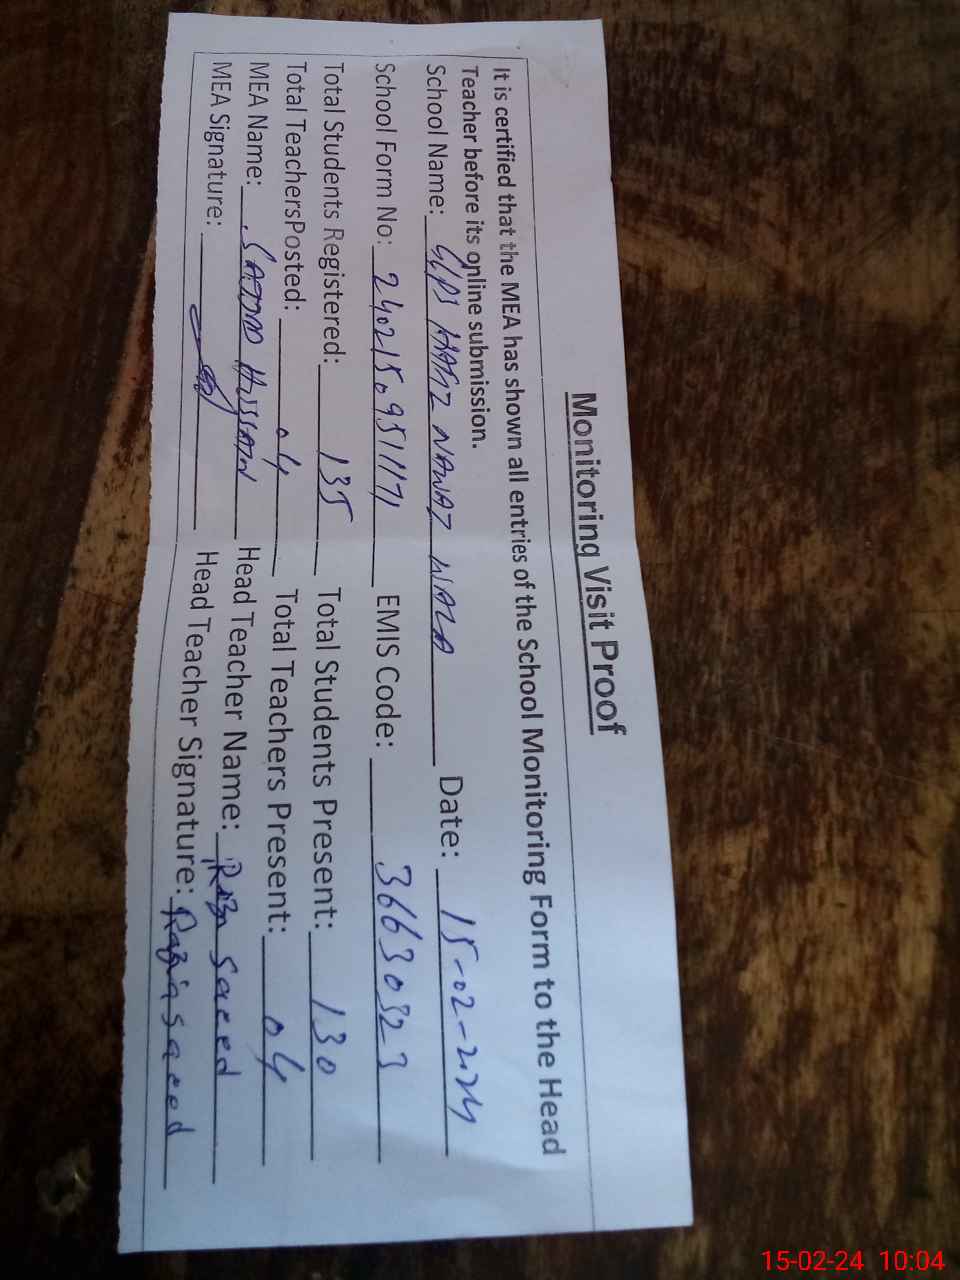 Monitoring Visit Proof
It is certified that the MEA has shown all entries of the School Monitoring Form to the Head
Teacher before its online submission.
School Name: G/PS NAWAZ WALA Date: 15-02-2024
School Form No: EMIS Code: 36630323
Total Students Registered: 135 Total Students Present: 130
Total TeachersPosted: 04 Total Teachers Present: 04
MEA Name: SAJJAD HUSSAIN Head Teacher Name: Saeed
MEA Signature: Head Teacher Signature: Razia Saeed
15-02-24 10:04